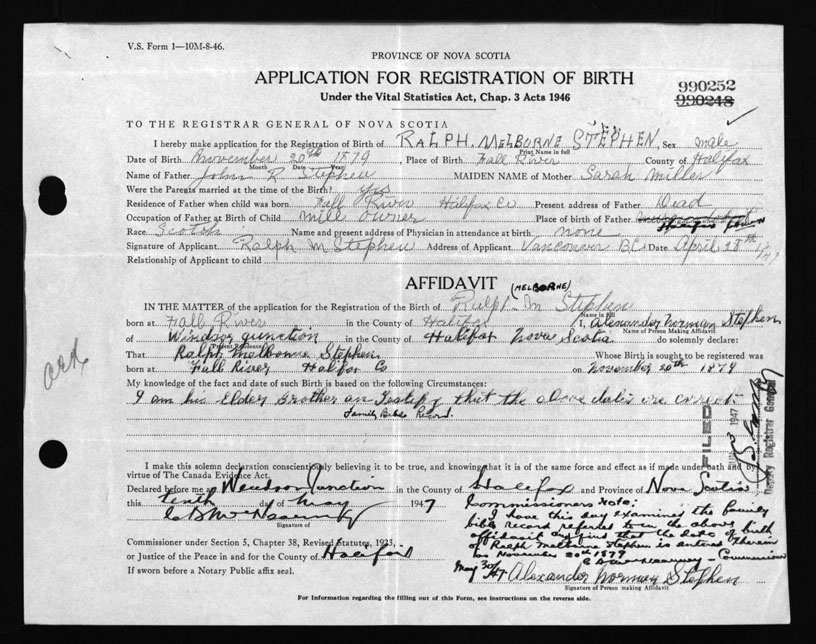 V.S. Form 1—10M-8-46.
PROVINCE OF NOVA SCOTIA
APPLICATION FOR REGISTRATION OF BIRTH
Under the Vital Statistics Act, Chap. 3 Acts 1946
990252
990248
TO THE REGISTRAR GENERAL OF NOVA SCOTIA
I hereby make application for the Registration of Birth of RALPH. MELBORNE STEPHEN, Sex male
Print Name in full
Date of Birth November 20th 1879, Place of Birth Fall River County of Halifax
Month Day Year
Name of Father John R Stephen MAIDEN NAME of Mother Sarah Miller
Were the Parents married at the time of the Birth? yes
Residence of Father when child was born Fall River Halifax Co Present address of Father Dead
Occupation of Father at Birth of Child Mill owner Place of birth of Father
Race Scotch Name and present address of Physician in attendance at birth none
Signature of Applicant Ralph M Stephen Address of Applicant Vancouver B.C. Date April 28th 1/47
Relationship of Applicant to child
AFFIDAVIT
(MELBORNE)
IN THE MATTER of the application for the Registration of the Birth of Ralph M Stephen
Name in full
born at Fall River in the County of Halifax I, Alexander Norman Stephen
Name of Person Making Affidavit
of Windsor Junction in the County of Halifax Nova Scotia do solemnly declare:
Present Residence
That Ralph Melborne Stephen Whose Birth is sought to be registered was
born at Fall River Halifax Co on November 20th 1879
My knowledge of the fact and date of such Birth is based on the following Circumstances:
I am his Elder Brother an Testify that the above dates are correct
Family Bible Record.
I make this solemn declaration conscientiously believing it to be true, and knowing that it is of the same force and effect as if made under oath and by
virtue of The Canada Evidence Act.
Declared before me at Windsor Junction in the County of Halifax and Province of Nova Scotia
this tenth day of May 1947
Signature of
Commissioner under Section 5, Chapter 38, Revised Statutes, 1923,
or Justice of the Peace in and for the County of Halifax
If sworn before a Notary Public affix seal.
Commissioners Note:
I have this day examined the family
bible record referred to in the above
affidavit and find that the date of birth
of Ralph Melborne Stephen is entered therein
as November 20th 1879
Commissioner
May 30/47 Alexander Norman Stephen
Signature of Person making Affidavit
FILED
1947
Deputy Registrar General
For information regarding the filling out of this Form, see instructions on the reverse side.